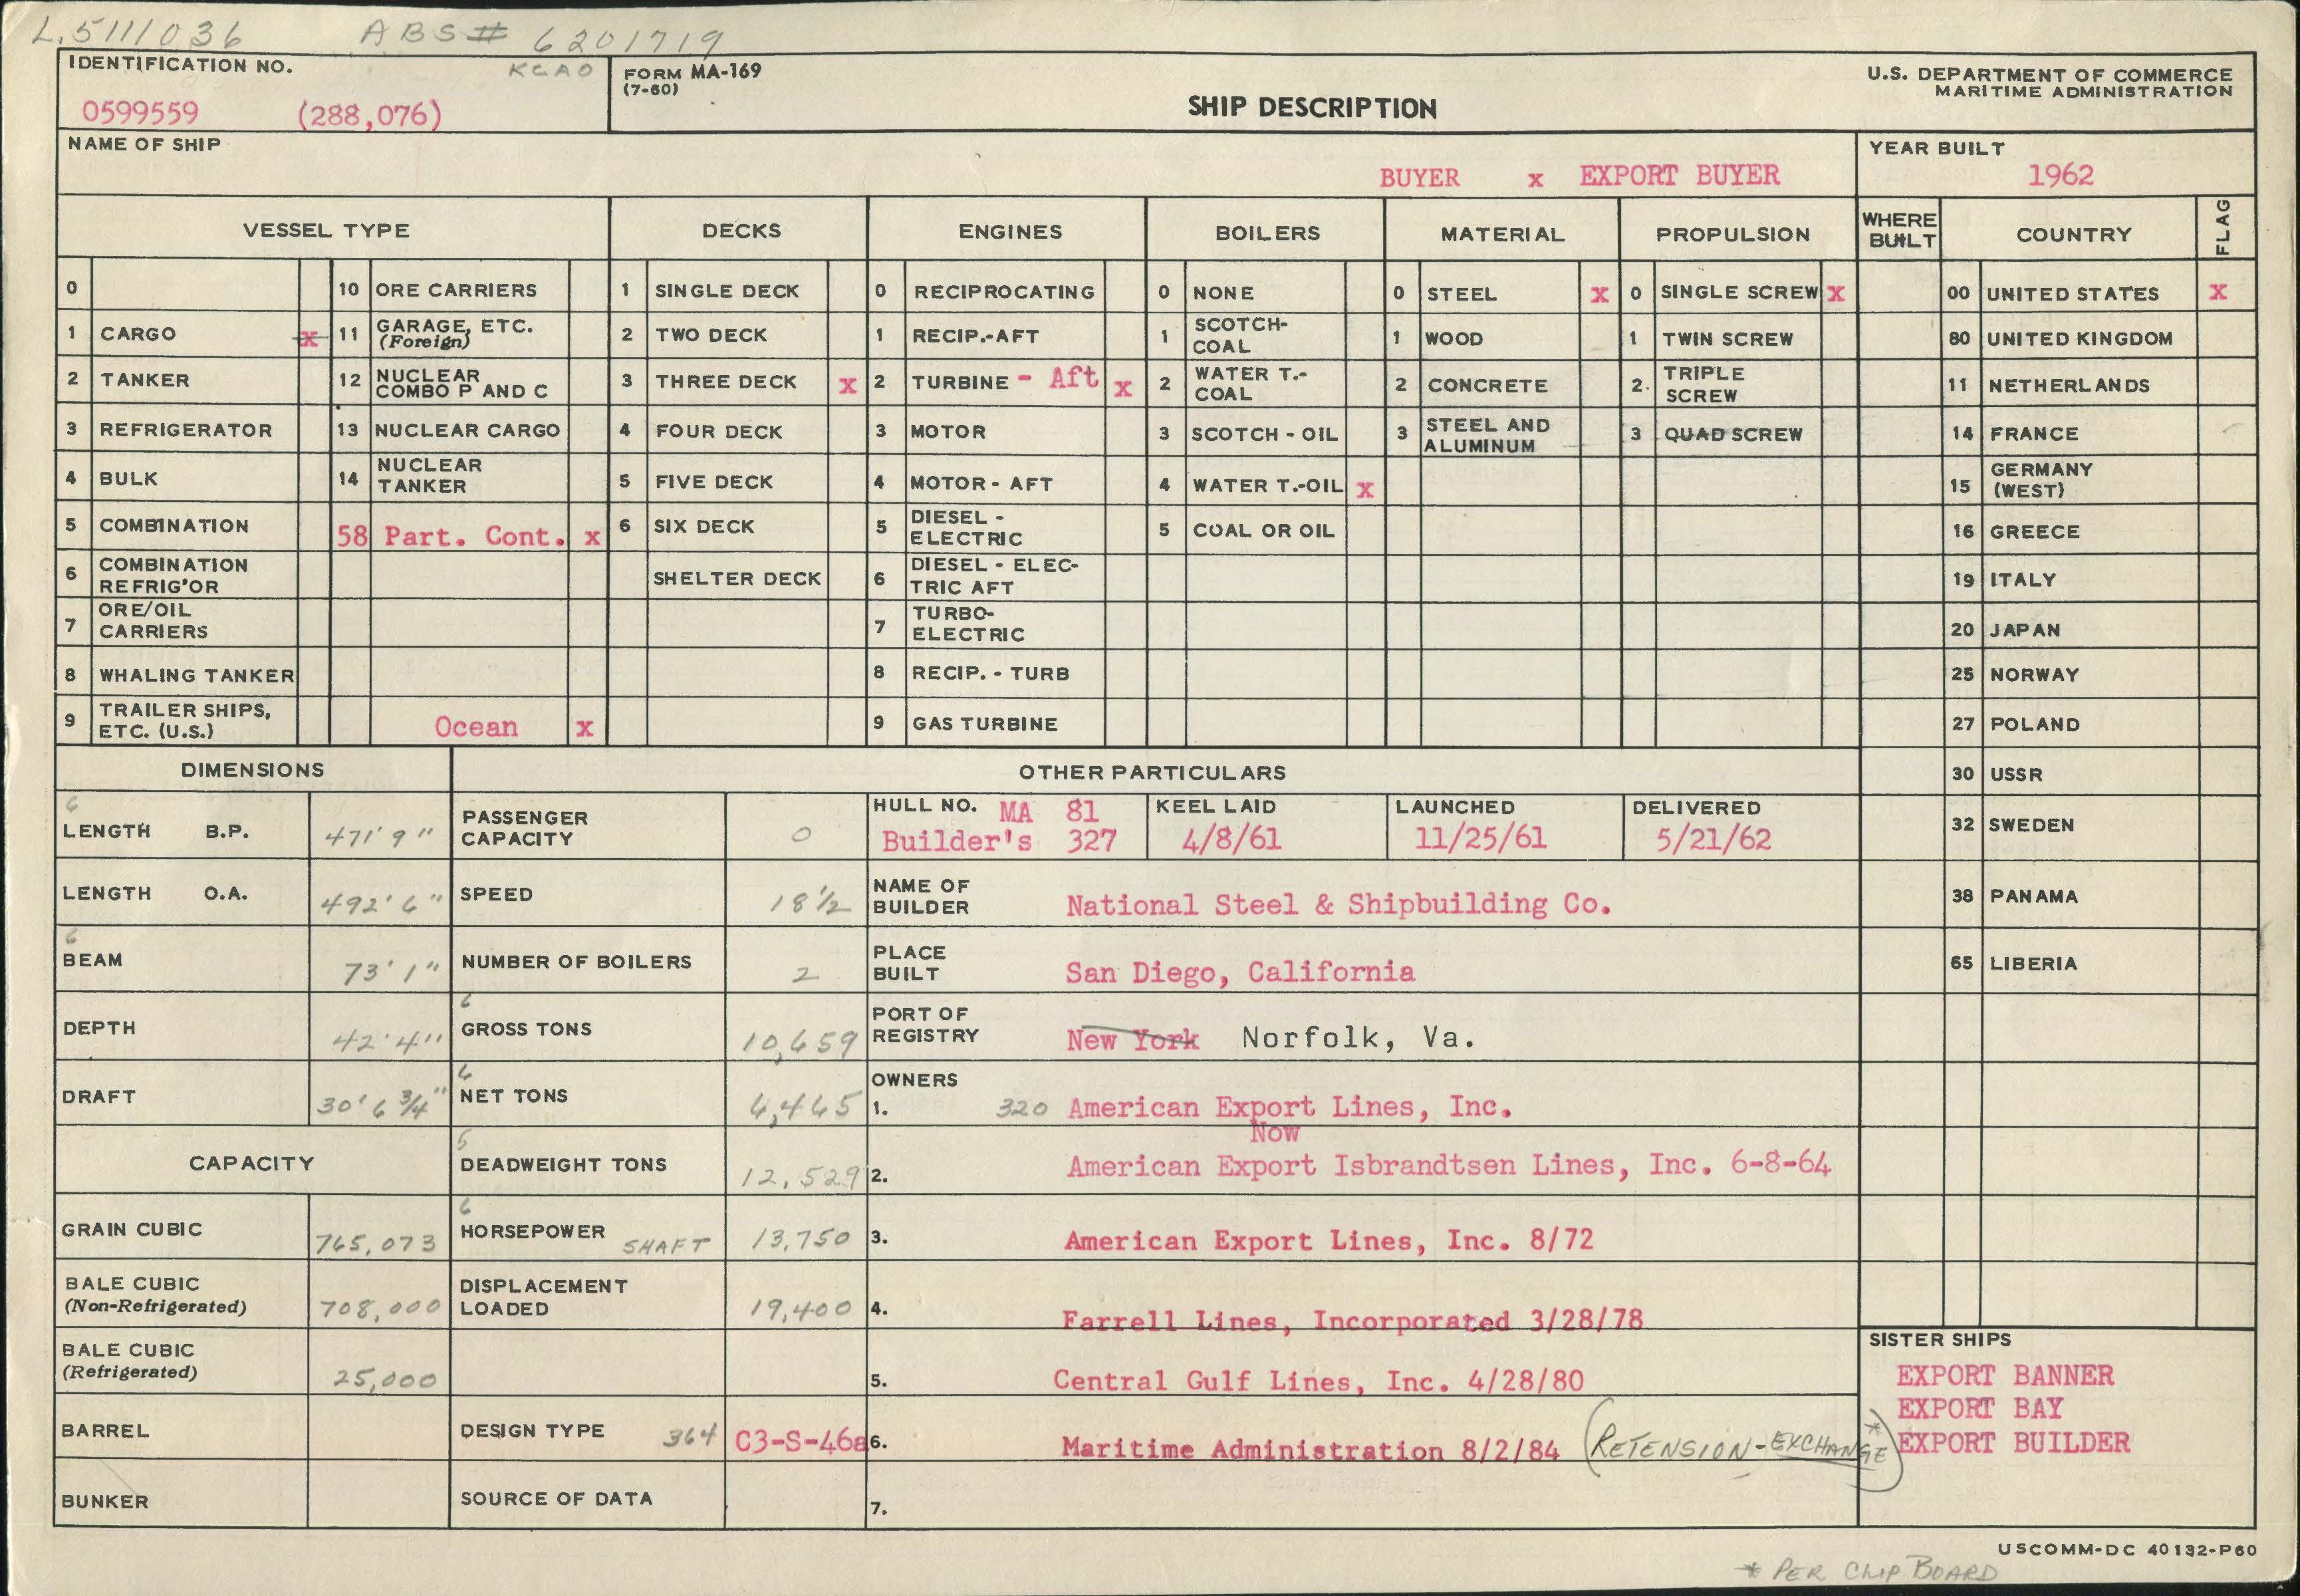 L.5111036 ABS# 6201719
IDENTIFICATION NO. KCAO
0599559 (288,076)
FORM MA-169
(7-60)
SHIP DESCRIPTION
U.S. DEPARTMENT OF COMMERCE
MARITIME ADMINISTRATION
NAME OF SHIP
BUYER x EXPORT BUYER
YEAR BUILT
1962
VESSEL TYPE DECKS ENGINES BOILERS MATERIAL PROPULSION WHERE BUILT COUNTRY FLAG
0 10 ORE CARRIERS 1 SINGLE DECK 0 RECIPROCATING 0 NONE 0 STEEL x 0 SINGLE SCREW x 00 UNITED STATES x
1 CARGO x 11 GARAGE, ETC. (Foreign) 2 TWO DECK 1 RECIP.-AFT 1 SCOTCH-COAL 1 WOOD 1 TWIN SCREW 80 UNITED KINGDOM
2 TANKER 12 NUCLEAR COMBO P AND C 3 THREE DECK x 2 TURBINE - Aft x 2 WATER T.-COAL 2 CONCRETE 2. TRIPLE SCREW 11 NETHERLANDS
3 REFRIGERATOR 13 NUCLEAR CARGO 4 FOUR DECK 3 MOTOR 3 SCOTCH - OIL 3 STEEL AND ALUMINUM 3 QUAD SCREW 14 FRANCE
4 BULK 14 NUCLEAR TANKER 5 FIVE DECK 4 MOTOR - AFT 4 WATER T.-OIL x 15 GERMANY (WEST)
5 COMBINATION 58 Part. Cont. x 6 SIX DECK 5 DIESEL - ELECTRIC 5 COAL OR OIL 16 GREECE
6 COMBINATION REFRIG'OR SHELTER DECK 6 DIESEL - ELECTRIC AFT 19 ITALY
7 ORE/OIL CARRIERS 7 TURBO-ELECTRIC 20 JAPAN
8 WHALING TANKER 8 RECIP. - TURB 25 NORWAY
9 TRAILER SHIPS, ETC. (U.S.) Ocean x 9 GAS TURBINE 27 POLAND
DIMENSIONS OTHER PARTICULARS 30 USSR
6
LENGTH B.P. 471' 9" PASSENGER CAPACITY 0
HULL NO. MA 81
Builder's 327
KEEL LAID
4/8/61
LAUNCHED
11/25/61
DELIVERED
5/21/62
32 SWEDEN
LENGTH O.A. 492' 6" SPEED 18 1/2 NAME OF BUILDER National Steel & Shipbuilding Co. 38 PANAMA
6
BEAM 73' 1" NUMBER OF BOILERS 2 PLACE BUILT San Diego, California 65 LIBERIA
6
DEPTH 42' 4" GROSS TONS 10,659 PORT OF REGISTRY New York Norfolk, Va.
6
DRAFT 30' 6 3/4" NET TONS 6,445 OWNERS
1. 320 American Export Lines, Inc.
Now
5
CAPACITY DEADWEIGHT TONS 12,529 2. American Export Isbrandtsen Lines, Inc. 6-8-64
6
GRAIN CUBIC 765,073 HORSEPOWER SHAFT 13,750 3. American Export Lines, Inc. 8/72
BALE CUBIC (Non-Refrigerated) 708,000 DISPLACEMENT LOADED 19,400 4. Farrell Lines, Incorporated 3/28/78
BALE CUBIC (Refrigerated) 25,000 5. Central Gulf Lines, Inc. 4/28/80
BARREL DESIGN TYPE 364 C3-S-46a 6. Maritime Administration 8/2/84 (RETENSION-EXCHANGE)*
BUNKER SOURCE OF DATA 7.
SISTER SHIPS
EXPORT BANNER
EXPORT BAY
EXPORT BUILDER
USCOMM-DC 40132-P60
* PER CLIP BOARD